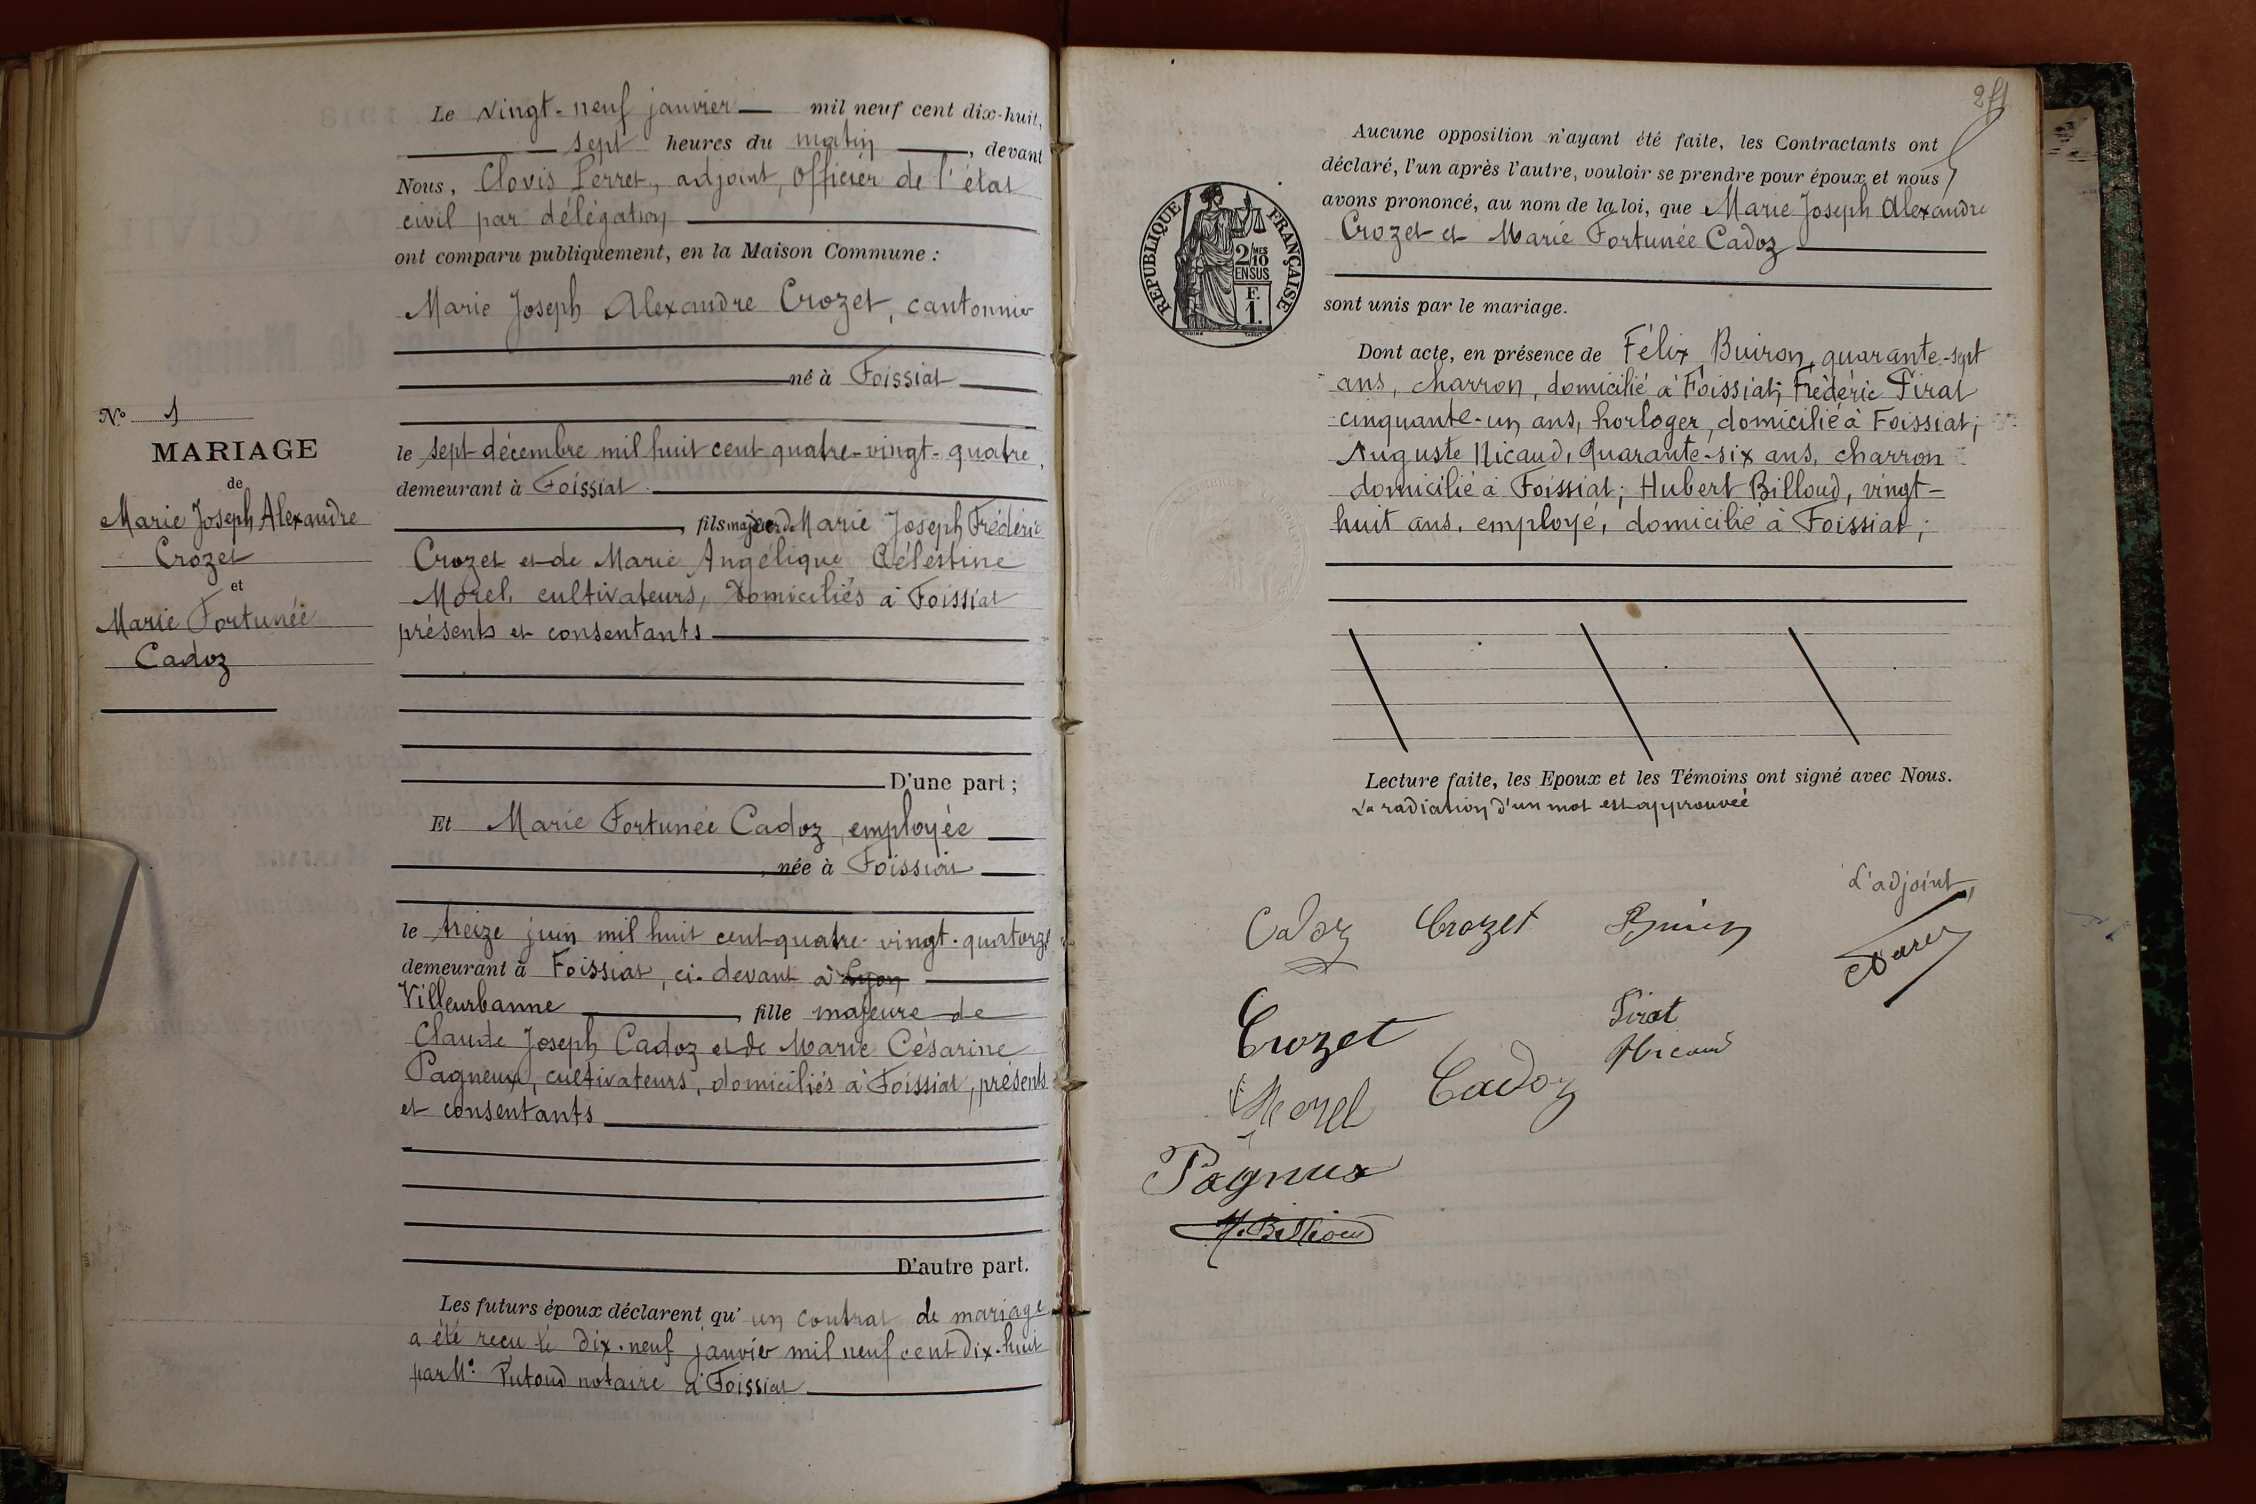 Le vingt-neuf janvier mil neuf cent dix-huit,
sept heures du matin, devant
Nous, Clovis Perret, adjoint, Officier de l'état
civil par délégation
ont comparu publiquement, en la Maison Commune :
Marie Joseph Alexandre Crozet, cantonnier
né à Foissiat
le sept décembre mil huit cent quatre-vingt-quatre,
demeurant à Foissiat
, fils majeur de Marie Joseph Frédéric
Crozet et de Marie Angélique Célestine
Morel, cultivateurs, domiciliés à Foissiat
présents et consentants
D'une part ;
Et Marie Fortunée Cadoz, employée
, née à Foissiat
le treize juin mil huit cent quatre-vingt-quatorze
demeurant à Foissiat, ci-devant à Lyon
Villeurbanne, fille majeure de
Claude Joseph Cadoz et de Marie Césarine
Pagneux, cultivateurs, domiciliés à Foissiat, présents
et consentants
D'autre part.
Les futurs époux déclarent qu'un contrat de mariage
a été reçu le dix-neuf janvier mil neuf cent dix-huit
par Me Putoud notaire à Foissiat
No 1
MARIAGE
de
Marie Joseph Alexandre
Crozet
et
Marie Fortunée
Cadoz
Aucune opposition n'ayant été faite, les Contractants ont
déclaré, l'un après l'autre, vouloir se prendre pour époux et nous
avons prononcé, au nom de la loi, que Marie Joseph Alexandre
Crozet et Marie Fortunée Cadoz
sont unis par le mariage.
Dont acte, en présence de Félix Buiron, quarante-sept
ans, charron, domicilié à Foissiat; Frédéric Pirat
cinquante-un ans, horloger, domicilié à Foissiat;
Auguste Nicaud, quarante-six ans, charron
domicilié à Foissiat; Hubert Billoud, vingt-
huit ans, employé, domicilié à Foissiat;
Lecture faite, les Epoux et les Témoins ont signé avec Nous.
La radiation d'un mot est approuvée
L'adjoint,
Cadoz Crozet
Crozet Pirat
Nicaud
Morel Cadoz
Pagneux
H. Billioud
REPUBLIQUE FRANÇAISE
2/10 MES
EN SUS
F.
1.